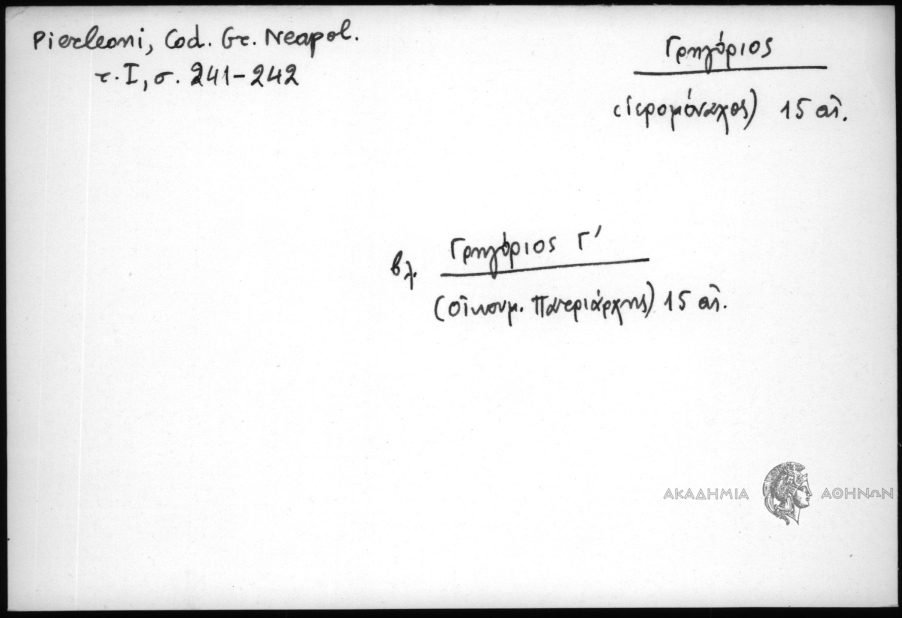 Pierleoni, Cod. Gr. Neapol.
τ. I, σ. 241-242
Γρηγόριος
(ἱερομόναχος) 15 αἰ.
βλ. Γρηγόριος Γ'
(οἰκουμ. Πατριάρχης) 15 αἰ.
ΑΚΑΔΗΜΙΑ ΑΘΗΝΩΝ